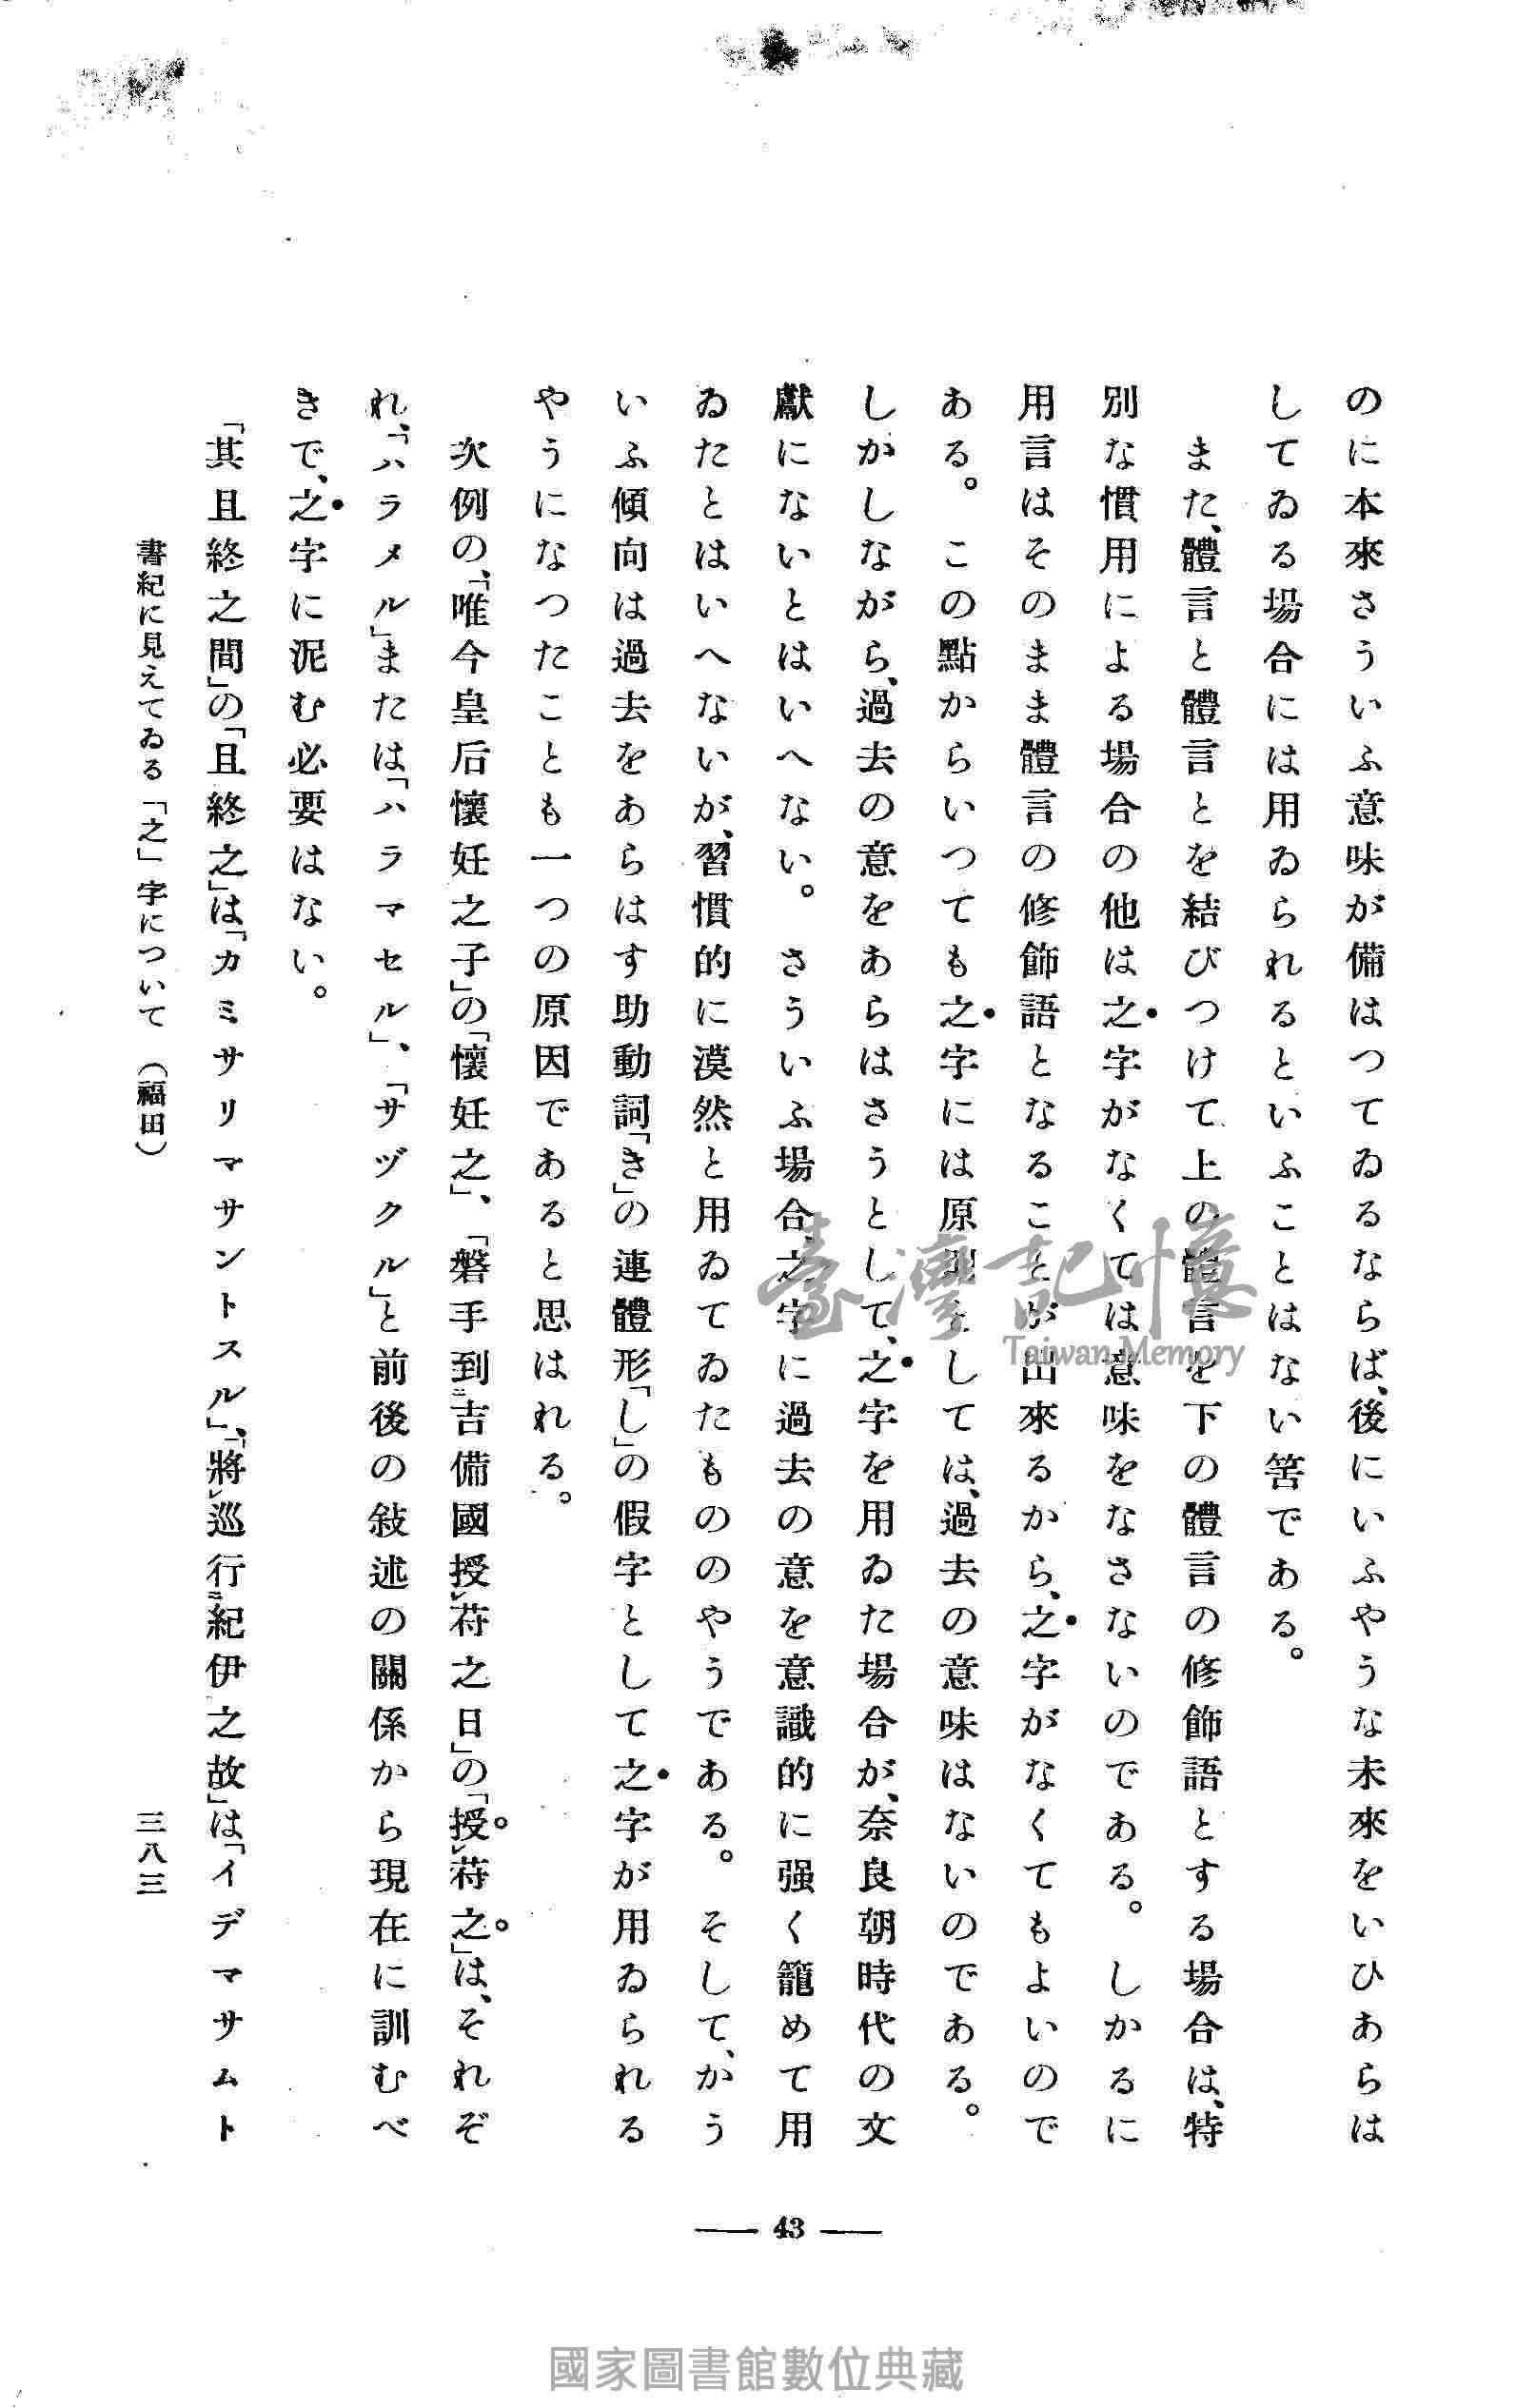 のに本來さういふ意味が備はつてゐるならば、後にいふやうな未來をいひあらは
してゐる場合には用ゐられるといふことはない筈である。
また、體言と體言とを結びつけて上の體言を下の體言の修飾語とする場合は、特
別な慣用による場合の他は之字がなくては意味をなさないのである。しかるに
用言はそのまま體言の修飾語となることが出來るから、之字がなくてもよいので
ある。この點からいつても之字には原則としては、過去の意味はないのである。
しかしながら、過去の意をあらはさうとして、之字を用ゐた場合が、奈良朝時代の文
獻にないとはいへない。さういふ場合、之字に過去の意を意識的に强く籠めて用
ゐたとはいへないが、習慣的に漠然と用ゐてゐたもののやうである。そして、かう
いふ傾向は過去をあらはす助動詞「き」の連體形「し」の假字として之字が用ゐられる
やうになつたことも一つの原因であると思はれる。
次例の、「唯今皇后懷妊之子」の「懷妊之」、「磐手到二吉備國授レ苻之日」の「授レ苻之」は、それぞ
れ、「ハラメル」または「ハラマセル」、「サヅクル」と前後の敍述の關係から現在に訓むべ
きで、之字に泥む必要はない。
「其且終之間」の「且終之」は「カミサリマサントスル」、「將レ巡行二紀伊之故」は「イデマサムト
書紀に見えてゐる「之」字について（福田）
三八三
43
臺灣記憶
Taiwan Memory
國家圖書館數位典藏